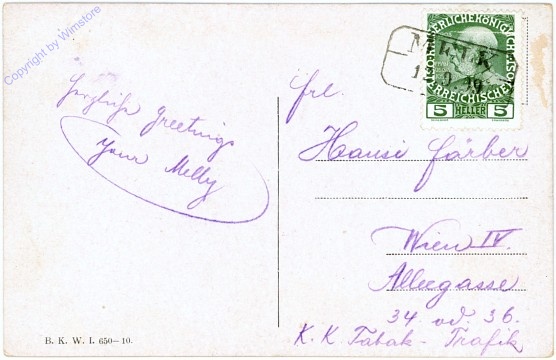 Copyright by Wimstore
Herzliche Greetings
Your Melly
KAISERLICHE KÖNIGLICHE ÖSTERREICHISCHE POST
5 HELLER 5
Frl.
Hansi Färber
Wien IV.
Alleegasse
34 od. 36.
K. K Tabak-Trafik
B. K. W. I. 650-10.